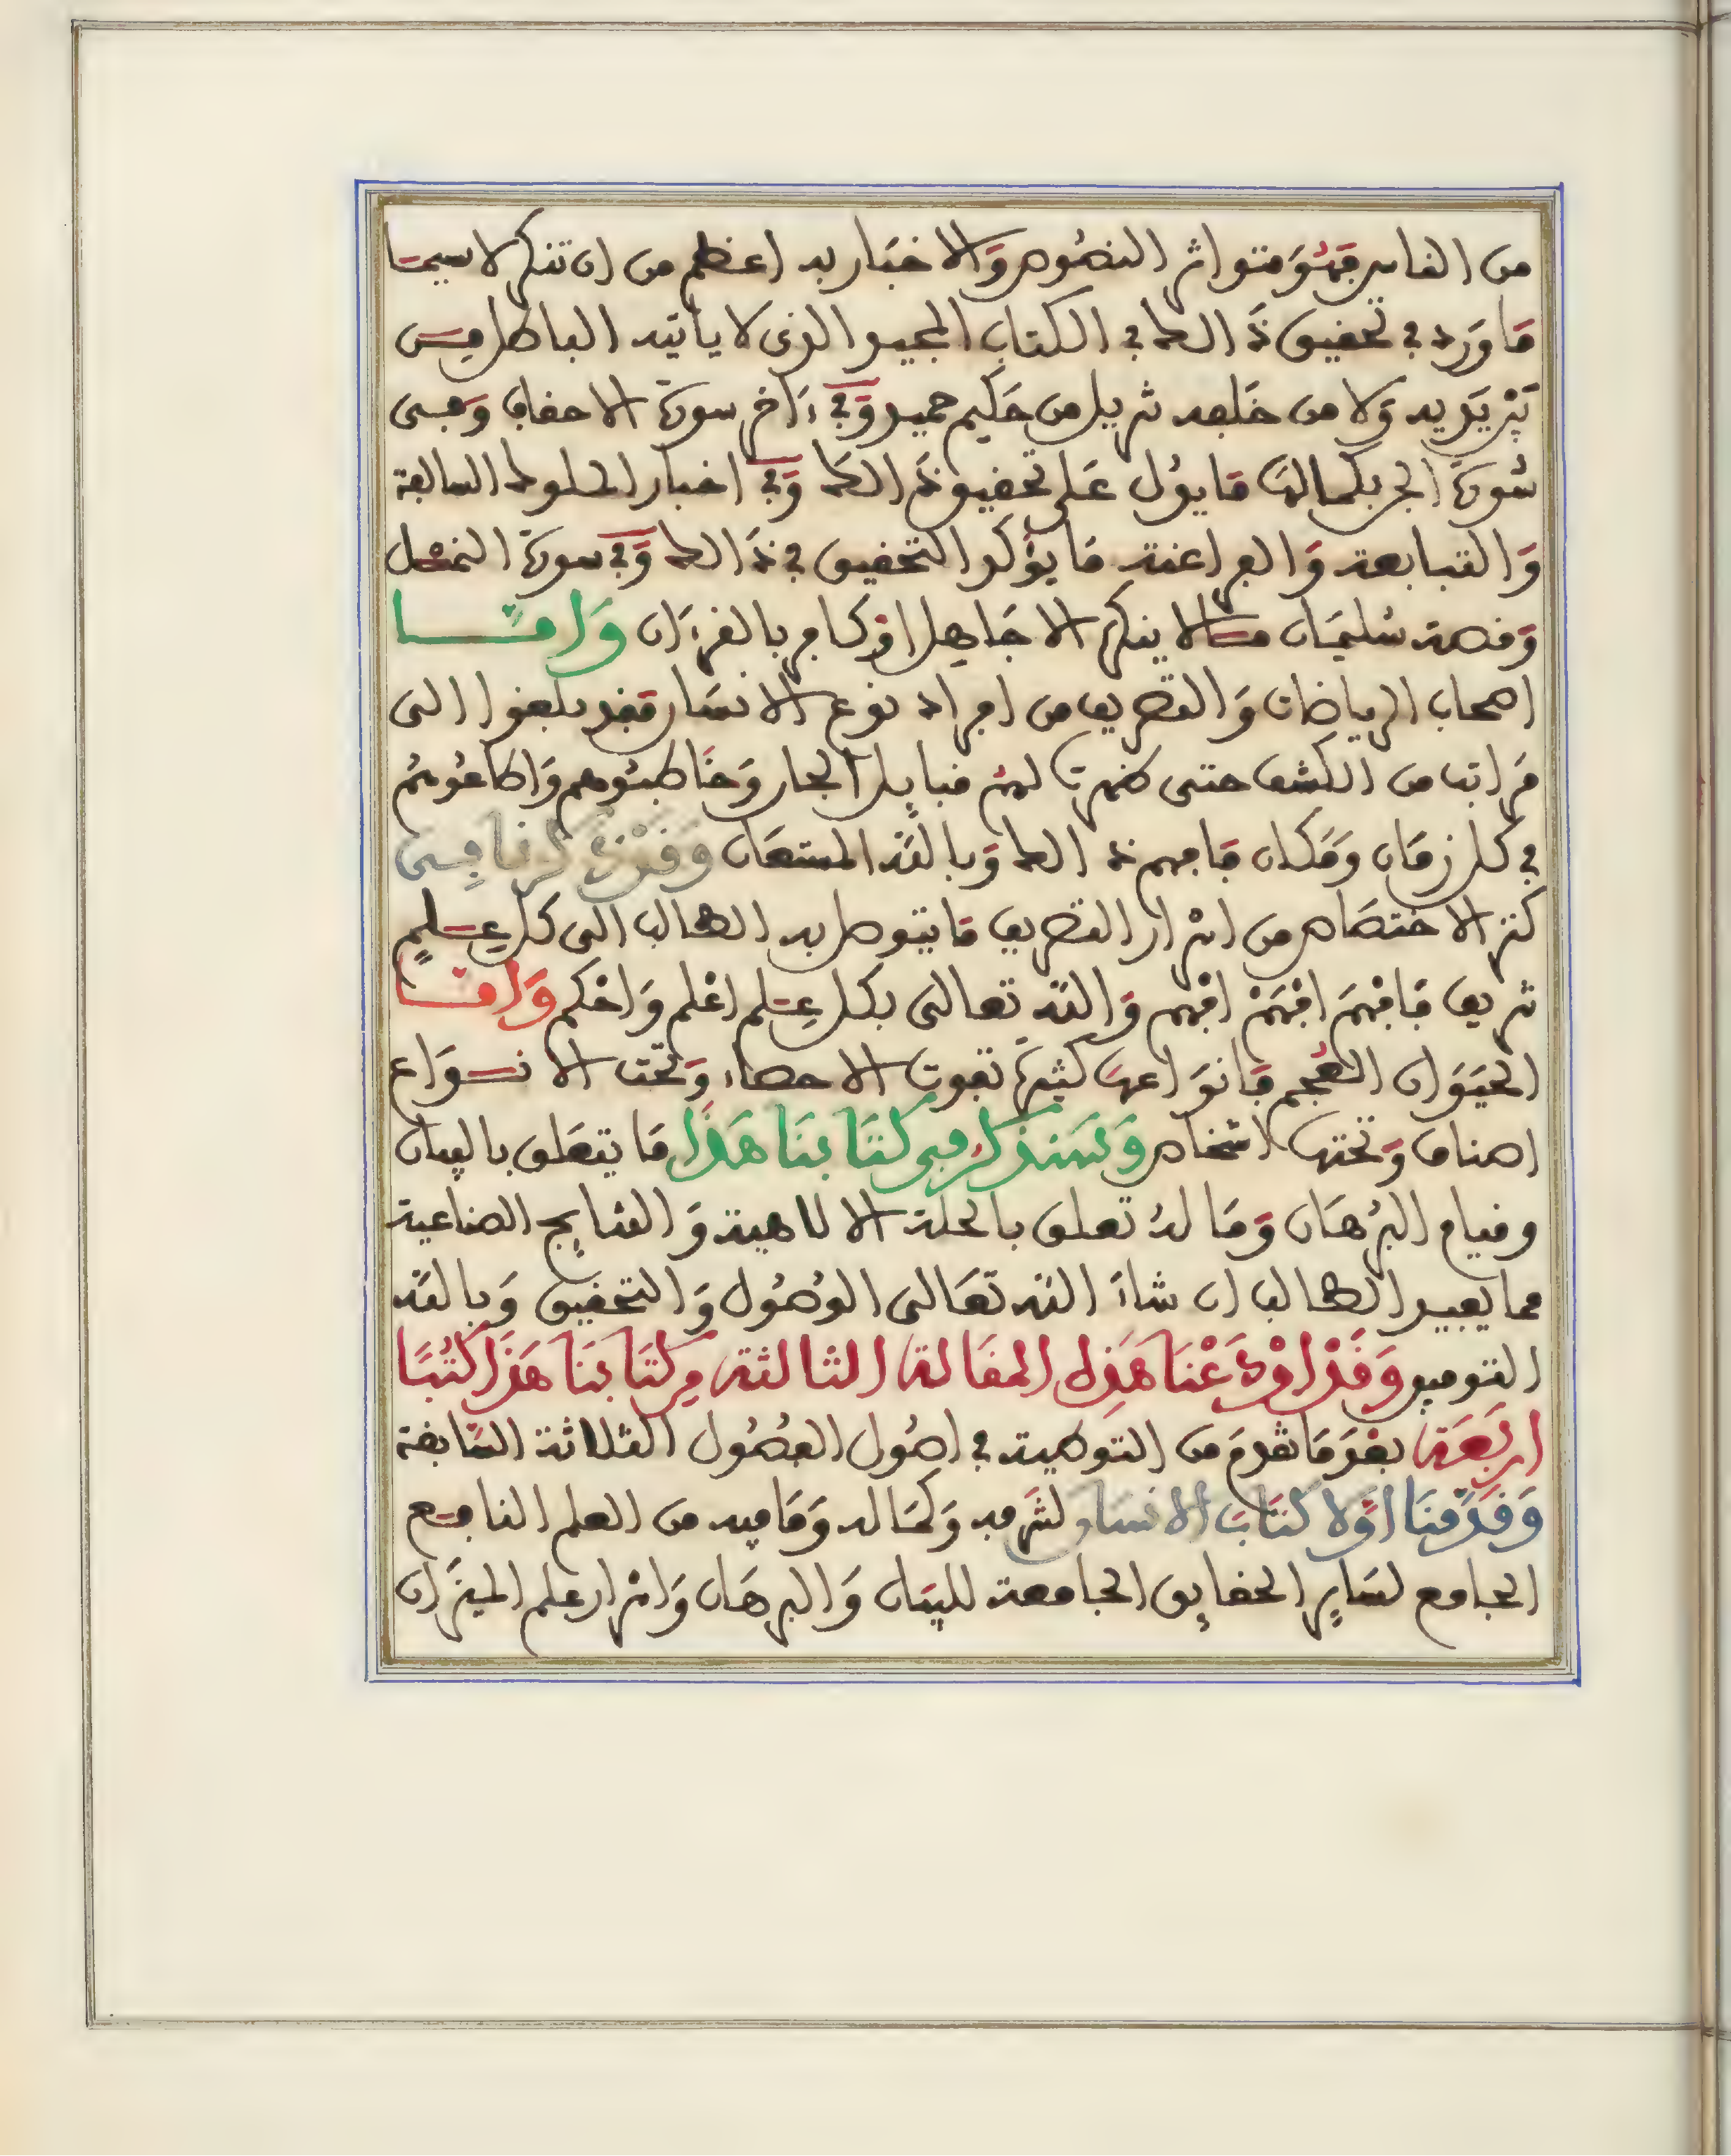 من الناس فهُوَ متواتر النصُوص وَالاخبَار به اعظم من ان تنكر لا سيمَا
مَا وَرد في تحقيق ذَالك في الكتاب المجيد الذى لا ياتيه الباطل مِن
بَيْن يَديه وَلا من خَلفه تنزيل من حَكيم حميد وَفي ءَاخر سورة الاحقاف وَفى
سُورَة الجن بكمالهَا مَا يدُل عَلى تحقيق ذَالكَ وَفي اخبار الملوك السالفة
وَالتبابعة وَالفراعنة مَا يؤَكد التحقيق في ذَالك وَفي سورة النمْل
وَقصة سُليمَان مَا لا ينكر الا جَاهل اوْ كافر بالقرءَان وَامَّا
اصحاب الرياضات وَالتصريف من افراد نوع الانسَان فقد بلغوا الى
مَراتب من الكشف حتى ظهرت لهمْ قبايل الجان وَخَاطبُوهم وَاطاعُوهُم
في كل زمَان وَمَكان فافهم ذَالك وَبالله المستعَان وَقدْ ذَكرنا فِى
كنز الاختصَاص من اسْرار التصريف مَا يتوصل به الطالب الى كل عِلمٍ
شريف فَافْهَمْ افْهَمْ افْهم وَالله تعالى بكل عِلم اعْلم وَاحْكم وَامَّا
الحيَوَان العُجم فَانوَاعهَا كثيرَة تفوت الاحصاء وَتحت الانوَاع
اصناف وَتحتها اشخاص وَسَنذكر فى كتَابنَا هَذَا مَا يتعَلق بالبيان
وقيام البرْهَان وَمَا لهُ تعلق بالحكمة الالاهية وَالنتايج الصناعية
مما يفيد الطالب ان شاءَ الله تعَالى الوُصُول وَالتحقيق وَبالله
التوفيق وَقَدْ اوْدَعْنَا هَذِه المقَالة الثالثة مِن كتَابنَا هَذَا كتُبًا
اربَعَة بعْدَ مَا تقدمَ من التوصية في اصُول الفصُول الثلاثة السَّابقة
وَقَدَّمْنَا اوَّلا كتَابَ الانسَان لشَرفه وَكمَاله وَمَا فيه من العلم النافع
الجامع لسَاير الحقايق الجامعة للبيَان وَالبرهَان وَاسْرار علم الميزَان